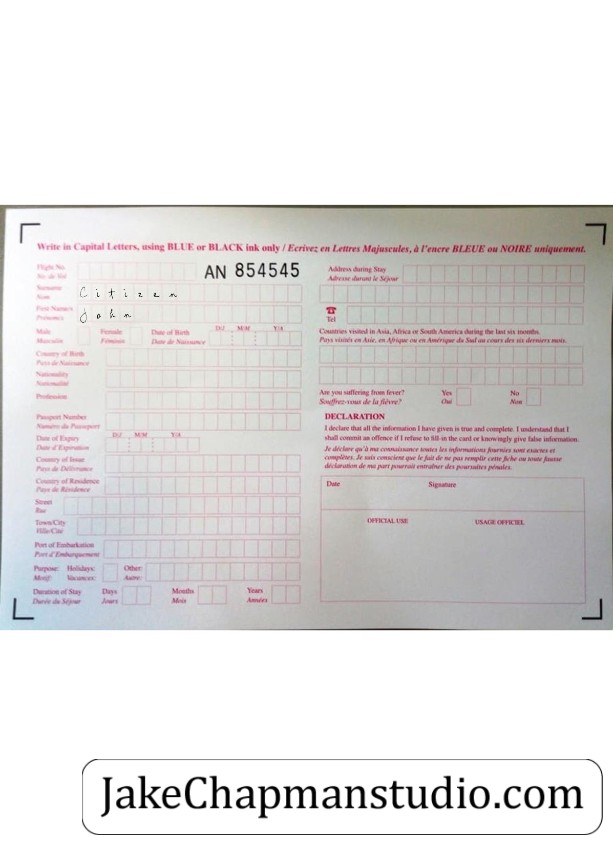 Write in Capital Letters, using BLUE or BLACK ink only / Ecrivez en Lettres Majuscules, à l'encre BLEUE ou NOIRE uniquement.
Flight No.
No. de Vol
AN 854545
Surname
Nom
Citizen
First Name/s
Prénom/s
John
Male
Masculin
Female
Féminin
Date of Birth
Date de Naissance
D/J M/M Y/A
Country of Birth
Pays de Naissance
Nationality
Nationalité
Profession
Passport Number
Numéro du Passeport
Date of Expiry
Date d'Expiration
D/J M/M Y/A
Country of Issue
Pays de Délivrance
Country of Residence
Pays de Résidence
Street
Rue
Town/City
Ville/Cité
Port of Embarkation
Port d'Embarquement
Purpose: Holidays: Other:
Motif: Vacances: Autre:
Duration of Stay Days Months Years
Durée du Séjour Jours Mois Années
Address during Stay
Adresse durant le Séjour
☎
Tel
Countries visited in Asia, Africa or South America during the last six months.
Pays visités en Asie, en Afrique ou en Amérique du Sud au cours des six derniers mois.
Are you suffering from fever? Yes No
Souffrez-vous de la fièvre? Oui Non
DECLARATION
I declare that all the information I have given is true and complete. I understand that I
shall commit an offence if I refuse to fill-in the card or knowingly give false information.
Je déclare qu'à ma connaissance toutes les informations fournies sont exactes et
complètes. Je suis conscient que le fait de ne pas remplir cette fiche ou toute fausse
déclaration de ma part pourrait entraîner des poursuites pénales.
Date Signature
OFFICIAL USE USAGE OFFICIEL
JakeChapmanstudio.com